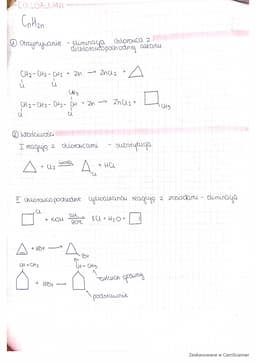 CYKLOALKANY
CnH2n
① Otrzymywanie - eliminacja chlorowca z
dichloropochodnej alkanu
CH2-CH2-CH2 + Zn → ZnCl2 +
Cl Cl
CH3
CH2-CH2-CH2-CH + Zn → ZnCl2 +
Cl Cl
CH3
② Właściwości
I reagują z chlorowcami - substytucja
+ Cl2 → + HCl
Cl
II chlorowcopochodne cykloalkanów reagują z zasadami - eliminacja
Cl
+ KOH → KCl + H2O +
+ HBr →
Br
CH=CH2 CH-CH3
+ HBr →
podstawnik
Zeskanowane w CamScanner